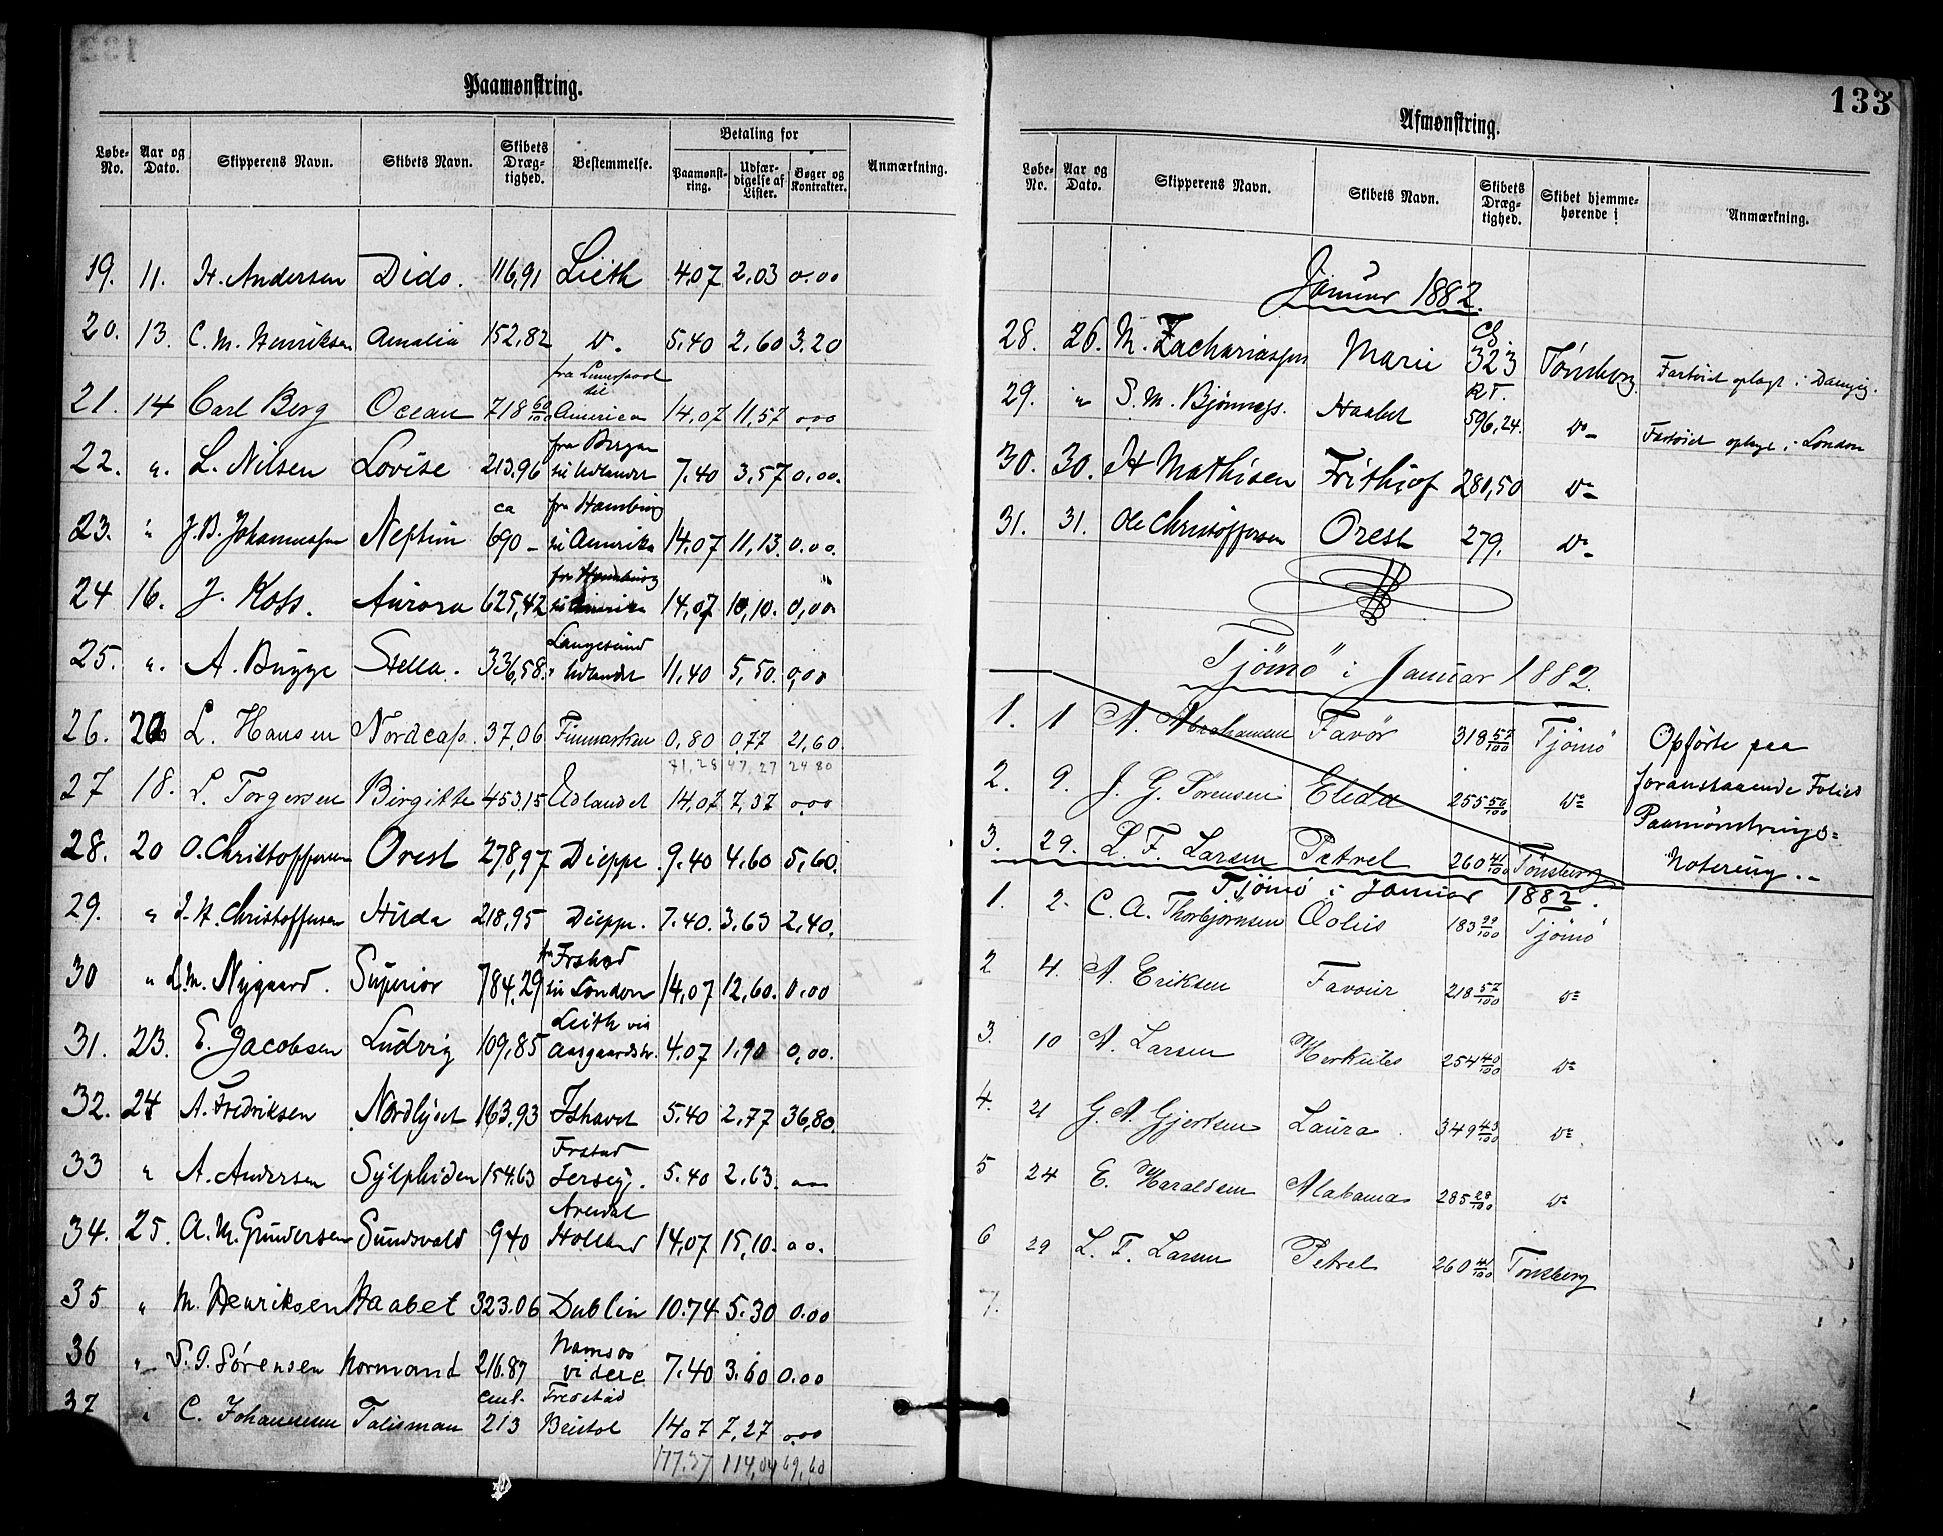 Paamønstring.
Løbe-No. Aar og Dato. Skipperens Navn. Skibets Navn. Skibets Dræg-tighed. Bestemmelse. Betaling for Paamønst-ring. Udfær-digelse af Lister. Bøger og Kontrakter. Anmærkning.
19. 11. H. Andersen Dido. 116,91 Lieth 4,07 2,03 0.00
20. 13. C. M. Henriksen Amalia 152,82 Do. 5.40 2,60 3.20
21. 14 Carl Berg Ocean 718 60/100 fra Liverpool til America 14,07 11,57 0,00
22. " L. Nilsen Lovise 213,96 fra Bergen til Udlandet 7.40 3,57 0,00.
23. " J. B. Johannessen Neptun ca 690 – fra Hamburg til Amerika 14.07 11,13. 0.00.
24 16. J. Koss. Aurora 625,42 fra Hamburg til Amerika 14,07 10,10. 0,00
25. " A. Bugge Stella. 336,58. Langesund " Udlandet 11,40 5,50. 0,00
26. 20 L. Hansen Nordcap. 37,06 Finmarken 0,80 0,77 21,60
71,28 47,27 24 80
27 18. L. Torgersen Birgitte 453,15 Udlandet 14,07 7,37 0,00
28. 20 O. Christoffersen Orest 278,97 Dieppe. 9.40 4.60 5,60.
29. " J. H. Christoffersen Hilda 218,95 Dieppe. 7.40. 3,63 2,40.
30 " L. M. Nygaard. Superior 784,29 fr Frstad til London 14,07 12,60. 0,00
31. 23. E. Jacobsen Ludvig 109,85 Leith via Aasgaardstr. 4.07 1.90 0,00.
32. 24 A. Fredriksen Nordlyset 163.93 Ishavet 5.40 2,77 36,80.
33 " A. Andersen Sylphiden 154.63 Frstad Jersey. 5.40 2,63.
34. 25. A. M. Gundersen Sundsvald 940 Arendal Holland 14,07 15,10.
35 " M. Henriksen Haabet 323.06 Dublin 10.74 5.30 0.00
36 " S. J. Sørensen Normand 216.87 Namsos videre 7.40 3.60 0.00
37 " C. Johannesen Talisman cml. 213 Fredstad Bristol 14,07 7,27 0,00
177.37 114,04 69,60
133
Afmønstring.
Løbe-No. Aar og Dato. Skipperens Navn. Skibets Navn. Skibets Dræg-tighed. Skibet hjemme-hørende i Anmærkning.
Januar 1882.
28. 26. M. Zachariassen Marie Cl. 323 Tønsberg Fartøiet oplagt i Danzig.
29. " S. M. Bjønness. Haabet R.T. 596,24. Do – Fartøiet oplagt i London
30. 30. H Mathisen Frithjof 280,50 Do –
31. 31. Ole Christoffersen Orest 279. Do –
Tjömö i Januar 1882.
1. 1 A. Abrahamsen Favör 318 57/100 Tjömö Opförte paa
2. 9. J. G. Sørensen Eleda 255 50/100 Do foranstaaende Folies
3. 29. L. F. Larsen Petrel 260 41/100 Tønsberg Paamönstrings=
Notering. –
Tjömö i Januar 1882.
1. 2. C. A. Thorbjørnsen Æolus 183 99/100 Tjömö
2 4. A. Eriksen Favour 218 57/100 Do
3. 10 A. Larsen Herkules 254 40/100 Do
4. 21 G. A. Gjertsen Laura 349 43/100 Do
5 24 E. Haraldsen Alabama 285 28/100 Do
6 29 L. F. Larsen Petrel 260 41/100 Tønsberg
7.